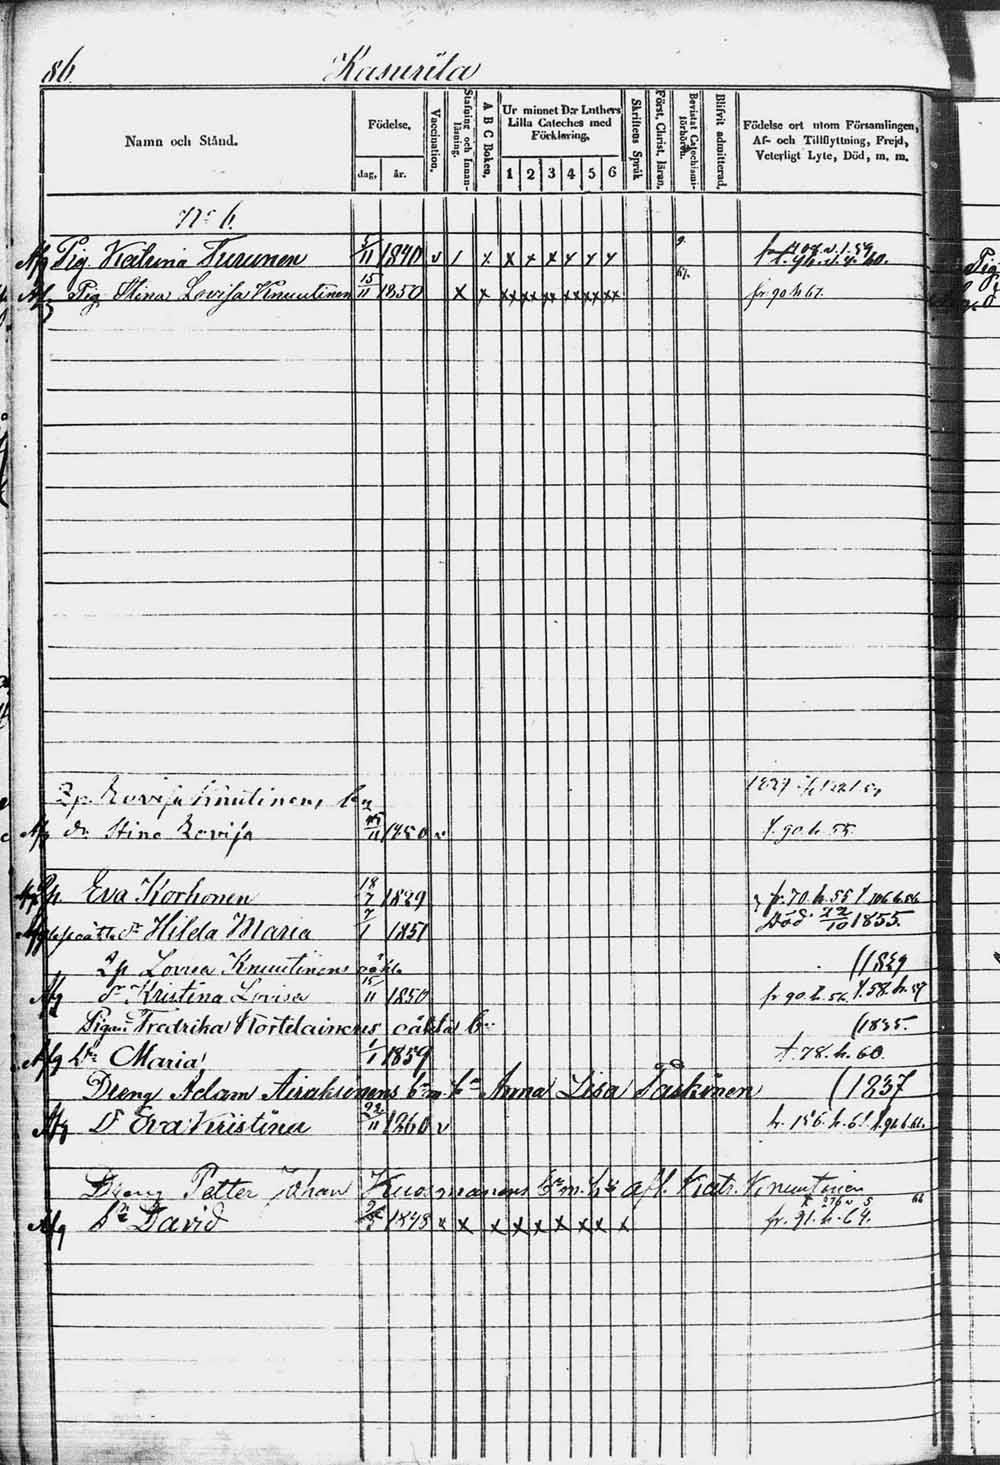 86.
Kasurila
Namn och Stånd.
Födelse,
dag,
år.
Vaccination.
Stafning och Innanläsning.
A B C Boken.
Ur minnet D:r Luthers Lilla Cateches med Förklaring,
1 2 3 4 5 6
Skriftens Språk
Först. Christ. läran.
Bevistat Catechismiförhören.
Blifvit admitterad.
Födelse ort utom Församlingen, Af- och Tillflyttning, Frejd, Veterligt Lyte, Död, m. m.
N:o 6.
Afg Pig. Katrina Turunen 5/11 1840 v / x x x x x x x 9.
Pig Stina Lovisa Knuutinen 15/11 1850 x x xx xx xx xx xx xx 67. fr. 90 h 67.
Lovisa Knutinens
Afg dr Stina Lovisa 15/11 1850 v f. 90. h. 55.
Eva Korhonen 18/7 1829 fr. 70. h. 55
dr Hilda Maria 7/1 1851 Död 22/10 1855.
Lovisa Knuutinens oäkta (1829
Afg dr Kristina Lovisa 15/11 1850 fr 90 h. 56. f. 58. h. 59
Pigan Fredrika Hortelainens oäkta b:n (1835.
Afg Maria 1/1 1859 t. 78. h. 60.
Dreng Adam Airaksinens b:n m. h:u Anna Lisa Taskinen (1837
Afg Dr Eva Kristina 22/11 1860 v h. 156. h. 61.
Dreng Petter Johan Kuosmanens b:n m. h:u afl. Katr. Knuutinen
Afg David 1848 x x x x x x x x x fr. 91. h. 64.